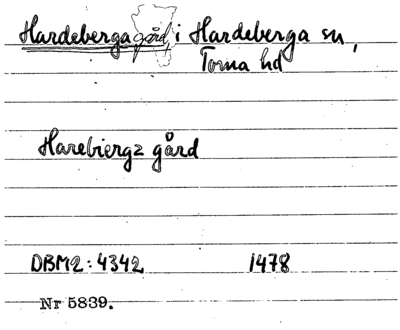 Hardeberga gård, i Hardeberga sn,
Torna hd
Harebiergz gård
DBM2:4342 1478
Nr 5839.